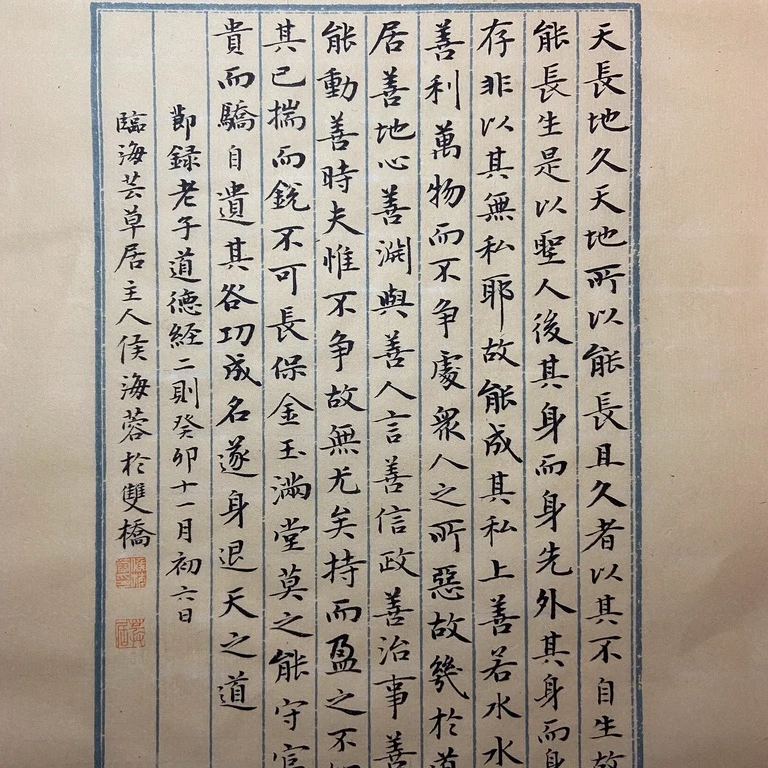 天長地久天地所以能長且久者以其不自生故
能長生是以聖人後其身而身先外其身而身
存非以其無私耶故能成其私上善若水水
善利萬物而不争處衆人之所惡故幾於道
居善地心善淵與善人言善信政善治事善
能動善時夫惟不争故無尤矣持而盈之不
其已揣而銳不可長保金玉滿堂莫之能守富
貴而驕自遺其咎功成名遂身退天之道
節録老子道德経二則癸卯十一月初六日
臨海芸草居主人侯海蓉於雙橋